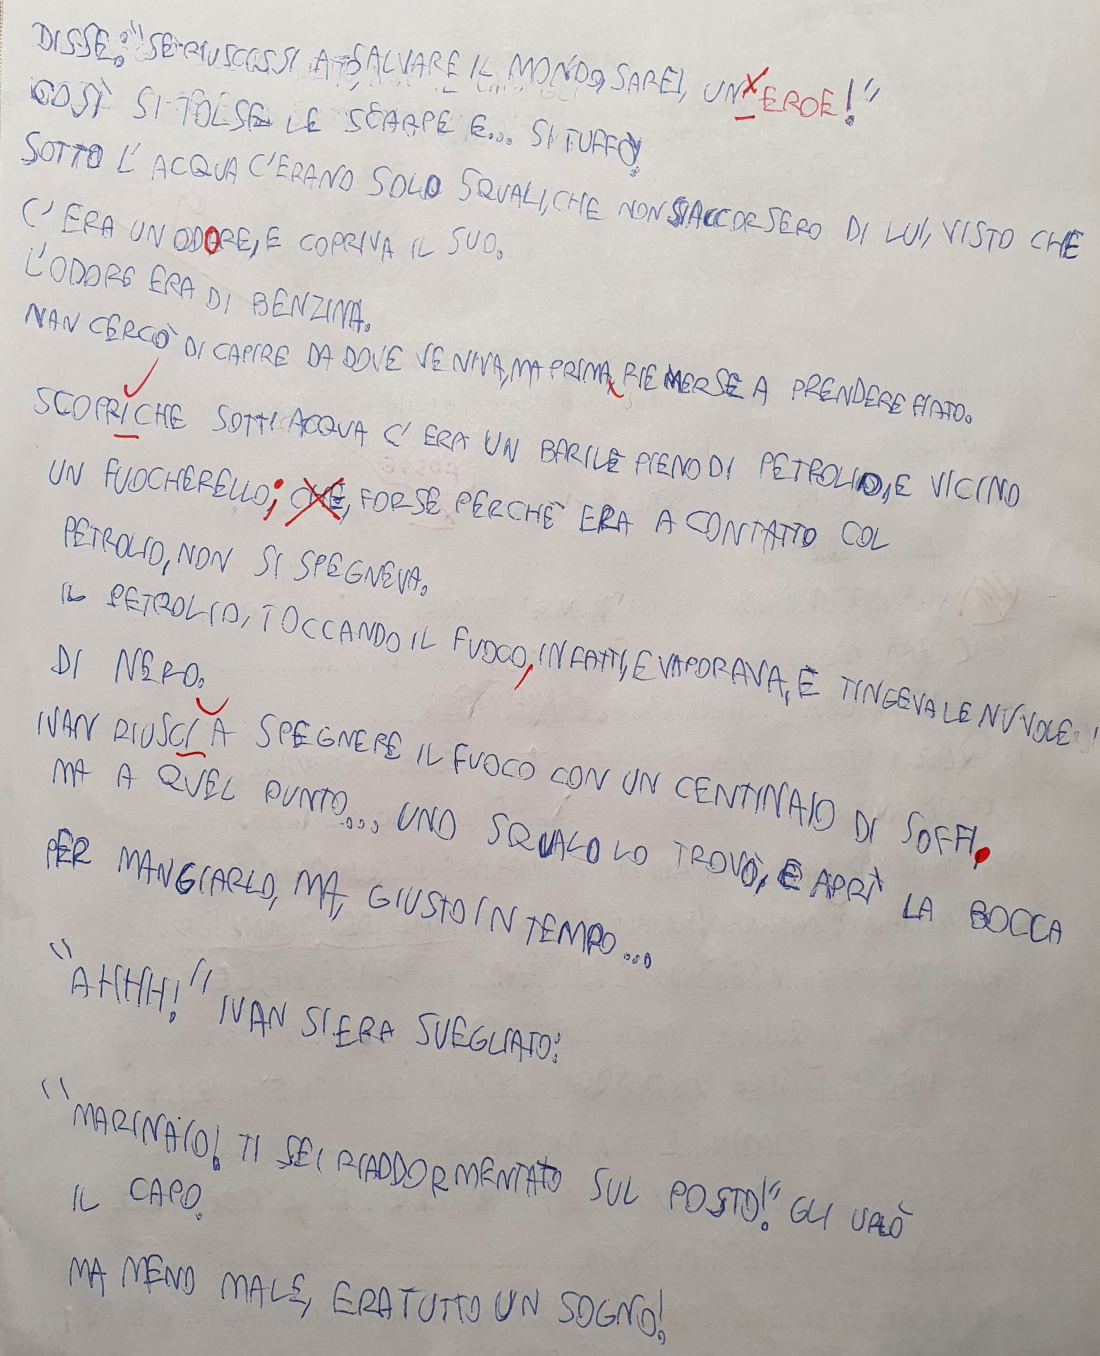 DISSE: "SE RIUSCISSI A SALVARE IL MONDO, SAREI, UN EROE!"
COSÌ SI TOLSE LE SCARPE E... SI TUFFÒ!
SOTTO L'ACQUA C'ERANO SOLO SQUALI, CHE NON SI ACCORSERO DI LUI, VISTO CHE
C'ERA UN ODORE, E COPRIVA IL SUO.
L'ODORE ERA DI BENZINA.
IVAN CERCÒ DI CAPIRE DA DOVE VENIVA, MA PRIMA, RIEMERSE A PRENDERE FIATO.
SCOPRÌ CHE SOTT'ACQUA C'ERA UN BARILE PIENO DI PETROLIO, E VICINO
UN FUOCHERELLO; CHE, FORSE PERCHÈ ERA A CONTATTO COL
PETROLIO, NON SI SPEGNEVA.
IL PETROLIO, TOCCANDO IL FUOCO, INFATTI, EVAPORAVA, E TINGEVA LE NUVOLE
DI NERO.
IVAN RIUSCI A SPEGNERE IL FUOCO CON UN CENTINAIO DI SOFFI.
MA A QUEL PUNTO... UNO SQUALO LO TROVÒ, E APRÌ LA BOCCA
PER MANGIARLO, MA, GIUSTO IN TEMPO...
"AHHH!" IVAN SI ERA SVEGLIATO:
"MARINAIO! TI SEI RIADDORMENTATO SUL POSTO!" GLI URLÒ
IL CAPO.
MA MENO MALE, ERA TUTTO UN SOGNO!